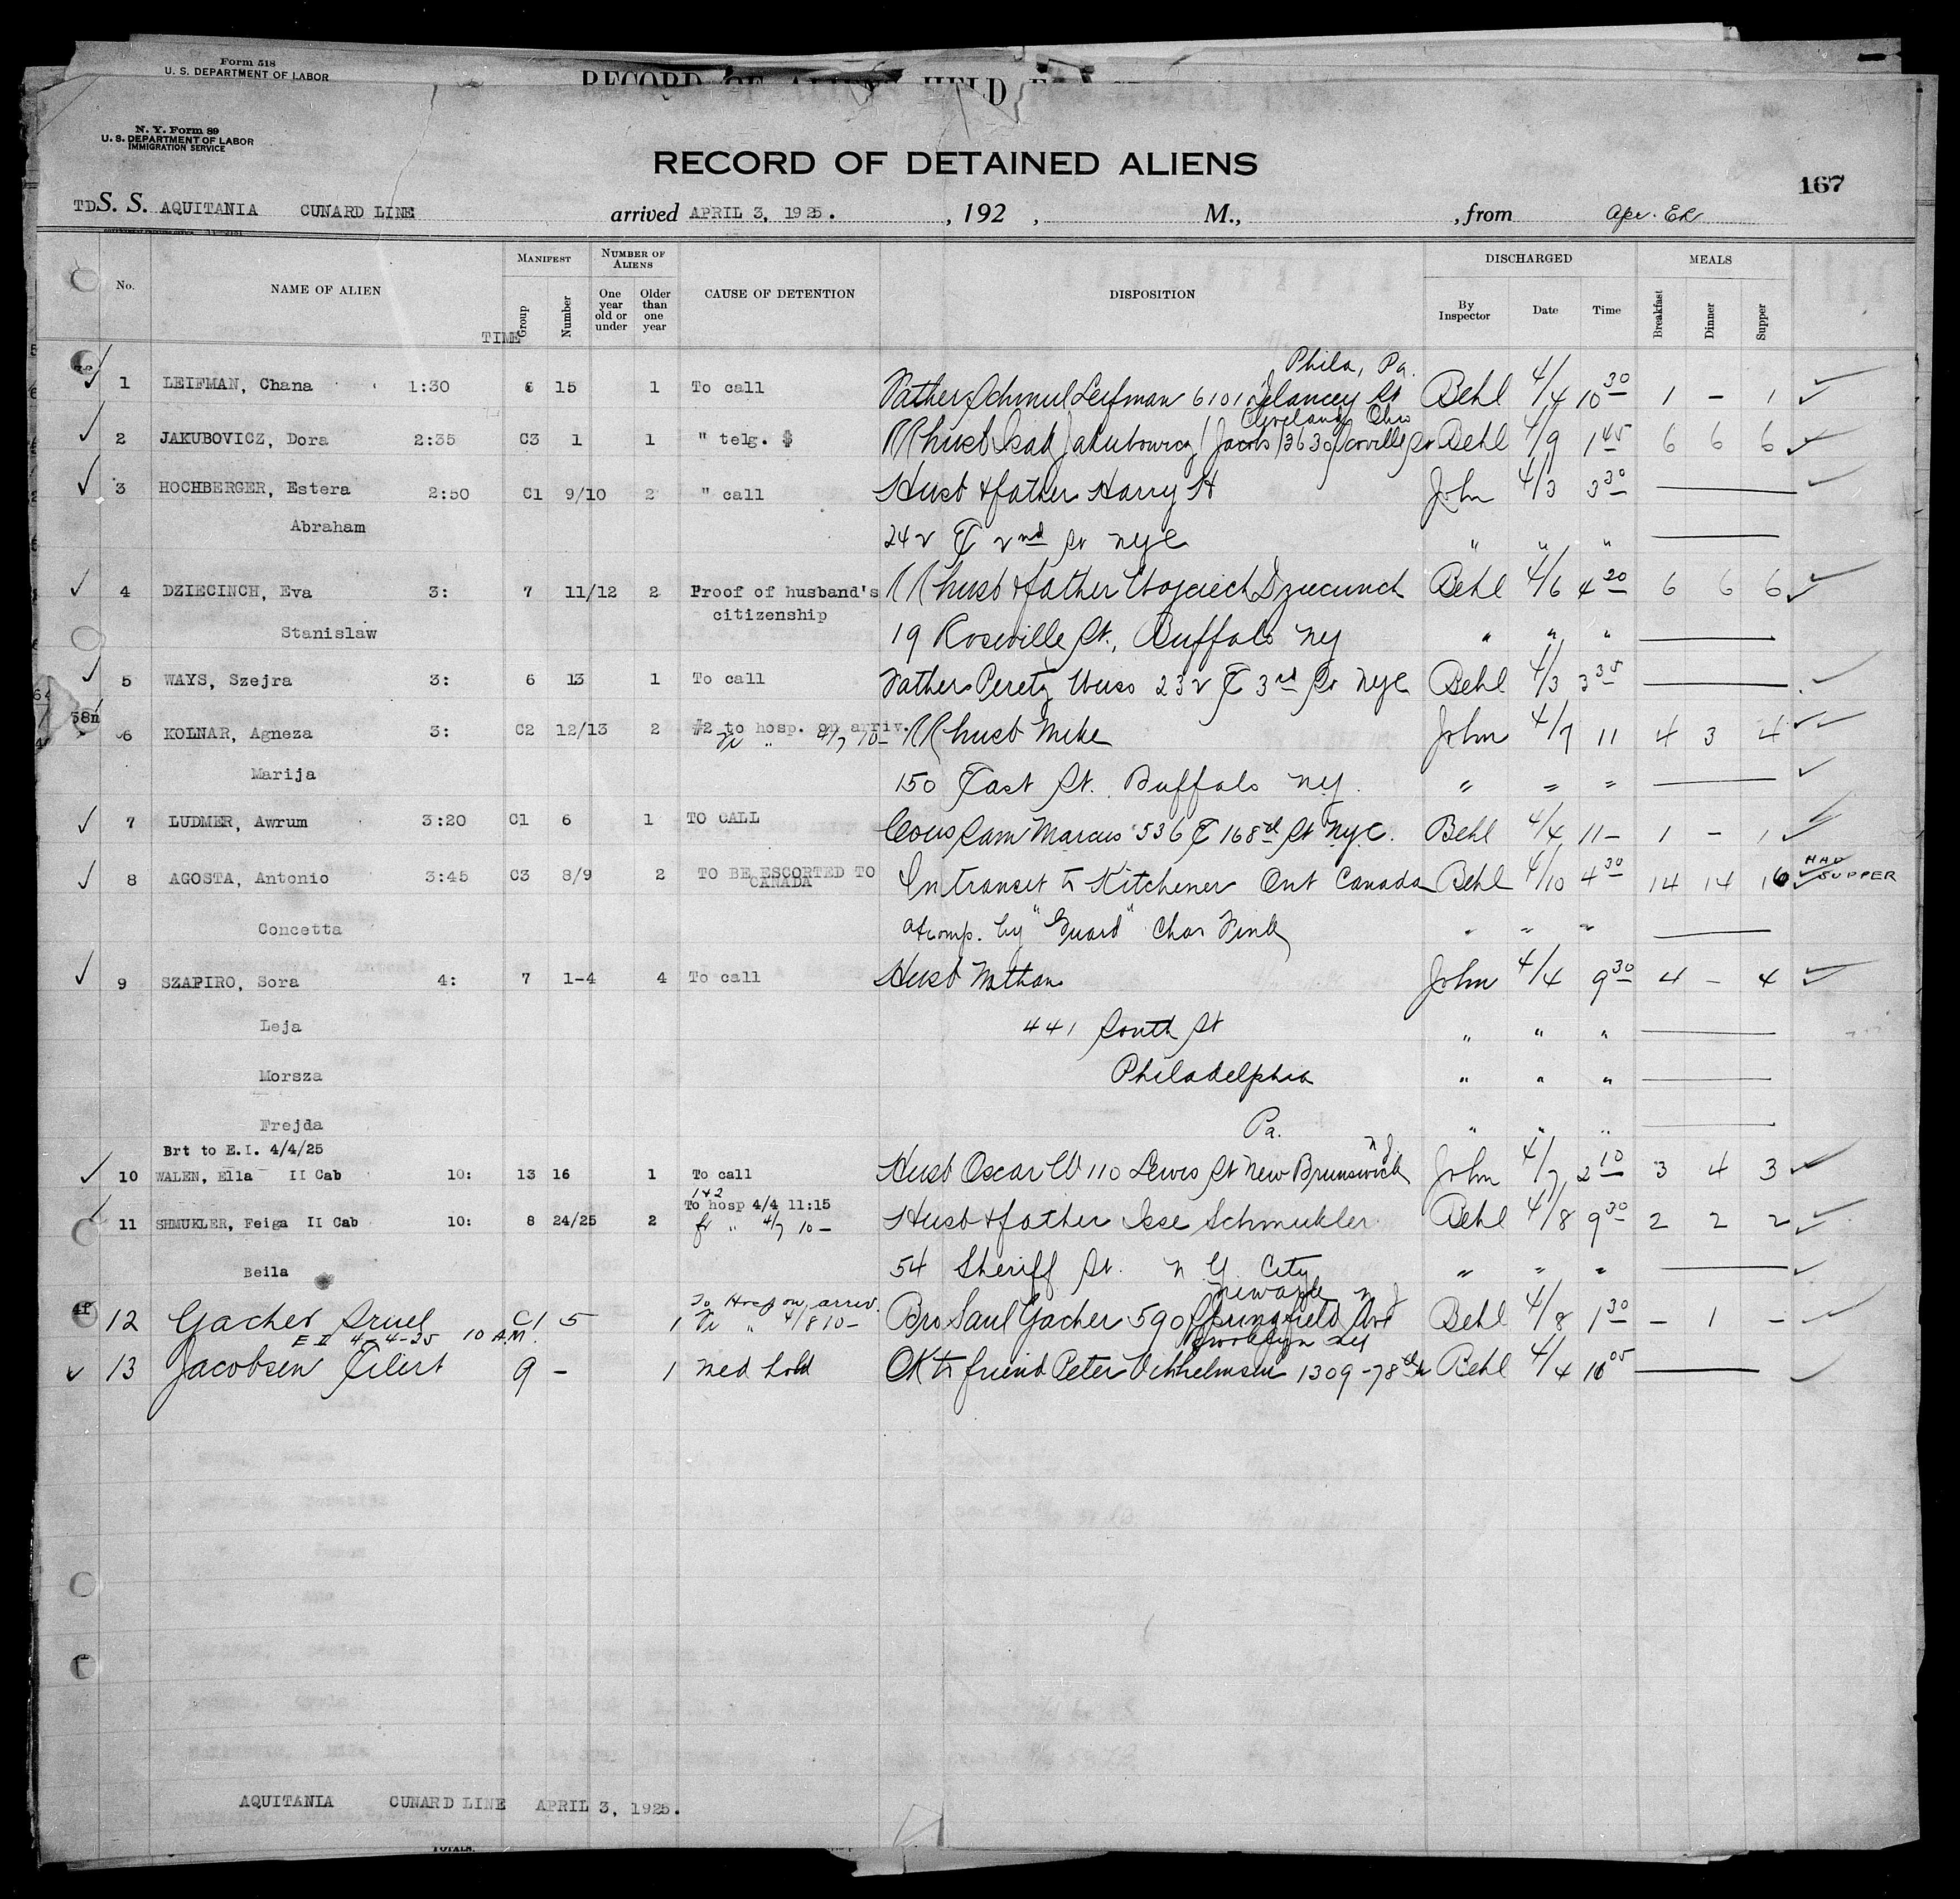 Form 518
U. S. DEPARTMENT OF LABOR
RECORD OF ALIENS HELD
N. Y. Form 89
U. S. DEPARTMENT OF LABOR
IMMIGRATION SERVICE
RECORD OF DETAINED ALIENS
167
TD S. S. AQUITANIA CUNARD LINE arrived APRIL 3, 1925. , 192 , M., , from
No. NAME OF ALIEN TIME MANIFEST Group Number NUMBER OF ALIENS One year old or under Older than one year CAUSE OF DETENTION DISPOSITION DISCHARGED By Inspector Date Time MEALS Breakfast Dinner Supper
Phila, Pa.
1 LEIFMAN, Chana 1:30 6 15 1 To call Father Schmul Leifman 6101 Delancey St Behl 4/4 10 30 1 – 1
Cleveland Ohio
2 JAKUBOVICZ, Dora 2:35 C3 1 1 " telg. $ RR husb Isak Jakubowicz (Jacobs) 3630 Scoville Behl 4/9 1 45 6 6 6
3 HOCHBERGER, Estera 2:50 C1 9/10 2 " call Husb & father Harry H John 4/3 3 30
Abraham 242 E 2nd St NYC " " "
4 DZIECINCH, Eva 3: 7 11/12 2 Proof of husband's RR husb & father Wojciech Dziecinch Behl 4/6 4 20 6 6 6
citizenship
Stanislaw 19 Roseville St., Buffalo NY " " "
5 WAYS, Szejra 3: 6 13 1 To call Father Peretz Weiss 232 E 3rd St NYC Behl 4/3 3 35
6 KOLNAR, Agneza 3: C2 12/13 2 #2 to hosp. on arriv. RR husb Mike John 4/7 11 4 3 4
Fr " 4/7 10–
Marija 150 East St. Buffalo NY. " " "
7 LUDMER, Awrum 3:20 C1 6 1 TO CALL Cous Sam Marcus 536 E 168th St NYC. Behl 4/4 11– 1 – 1
HAD
8 AGOSTA, Antonio 3:45 C3 8/9 2 TO BE ESCORTED TO In transit to Kitchener Ont Canada Behl 4/10 4 30 14 14 16 SUPPER
CANADA
Concetta accomp. by "Guard" Chas Fink " " "
9 SZAPIRO, Sora 4: 7 1-4 4 To call Husb Nathan John 4/4 9 30 4 – 4
Leja 441 South St " " "
Morsza Philadelphia " " "
Frejda Pa. " " "
Brt to E.I. 4/4/25 NJ
10 WALEN, Ella II Cab 10: 13 16 1 To call Husb Oscar W 110 Lewis St New Brunswick John 4/7 2 10 3 4 3
1+2
To hosp 4/4 11:15
11 SHMUKLER, Feiga II Cab 10: 8 24/25 2 fr " 4/7 10– Husb & father Isse Schmukler Behl 4/8 9 30 2 2 2
Beila 54 Sheriff St. N Y. City " " "
To Hosp on arriv. Newark NJ
12 Gacher Sruel C1 5 1 Fr " 4/8 10– Bro Saul Gacher 590 Springfield Ave Behl 4/8 1 30 – 1 –
EI 4-4-25 10 AM. Brooklyn NY
13 Jacobsen Eilert 9 – 1 Med hold OK to friend Peter Vilhelmsen 1309-78th St Behl 4/4 10 05
AQUITANIA CUNARD LINE APRIL 3, 1925.
TOTALS.